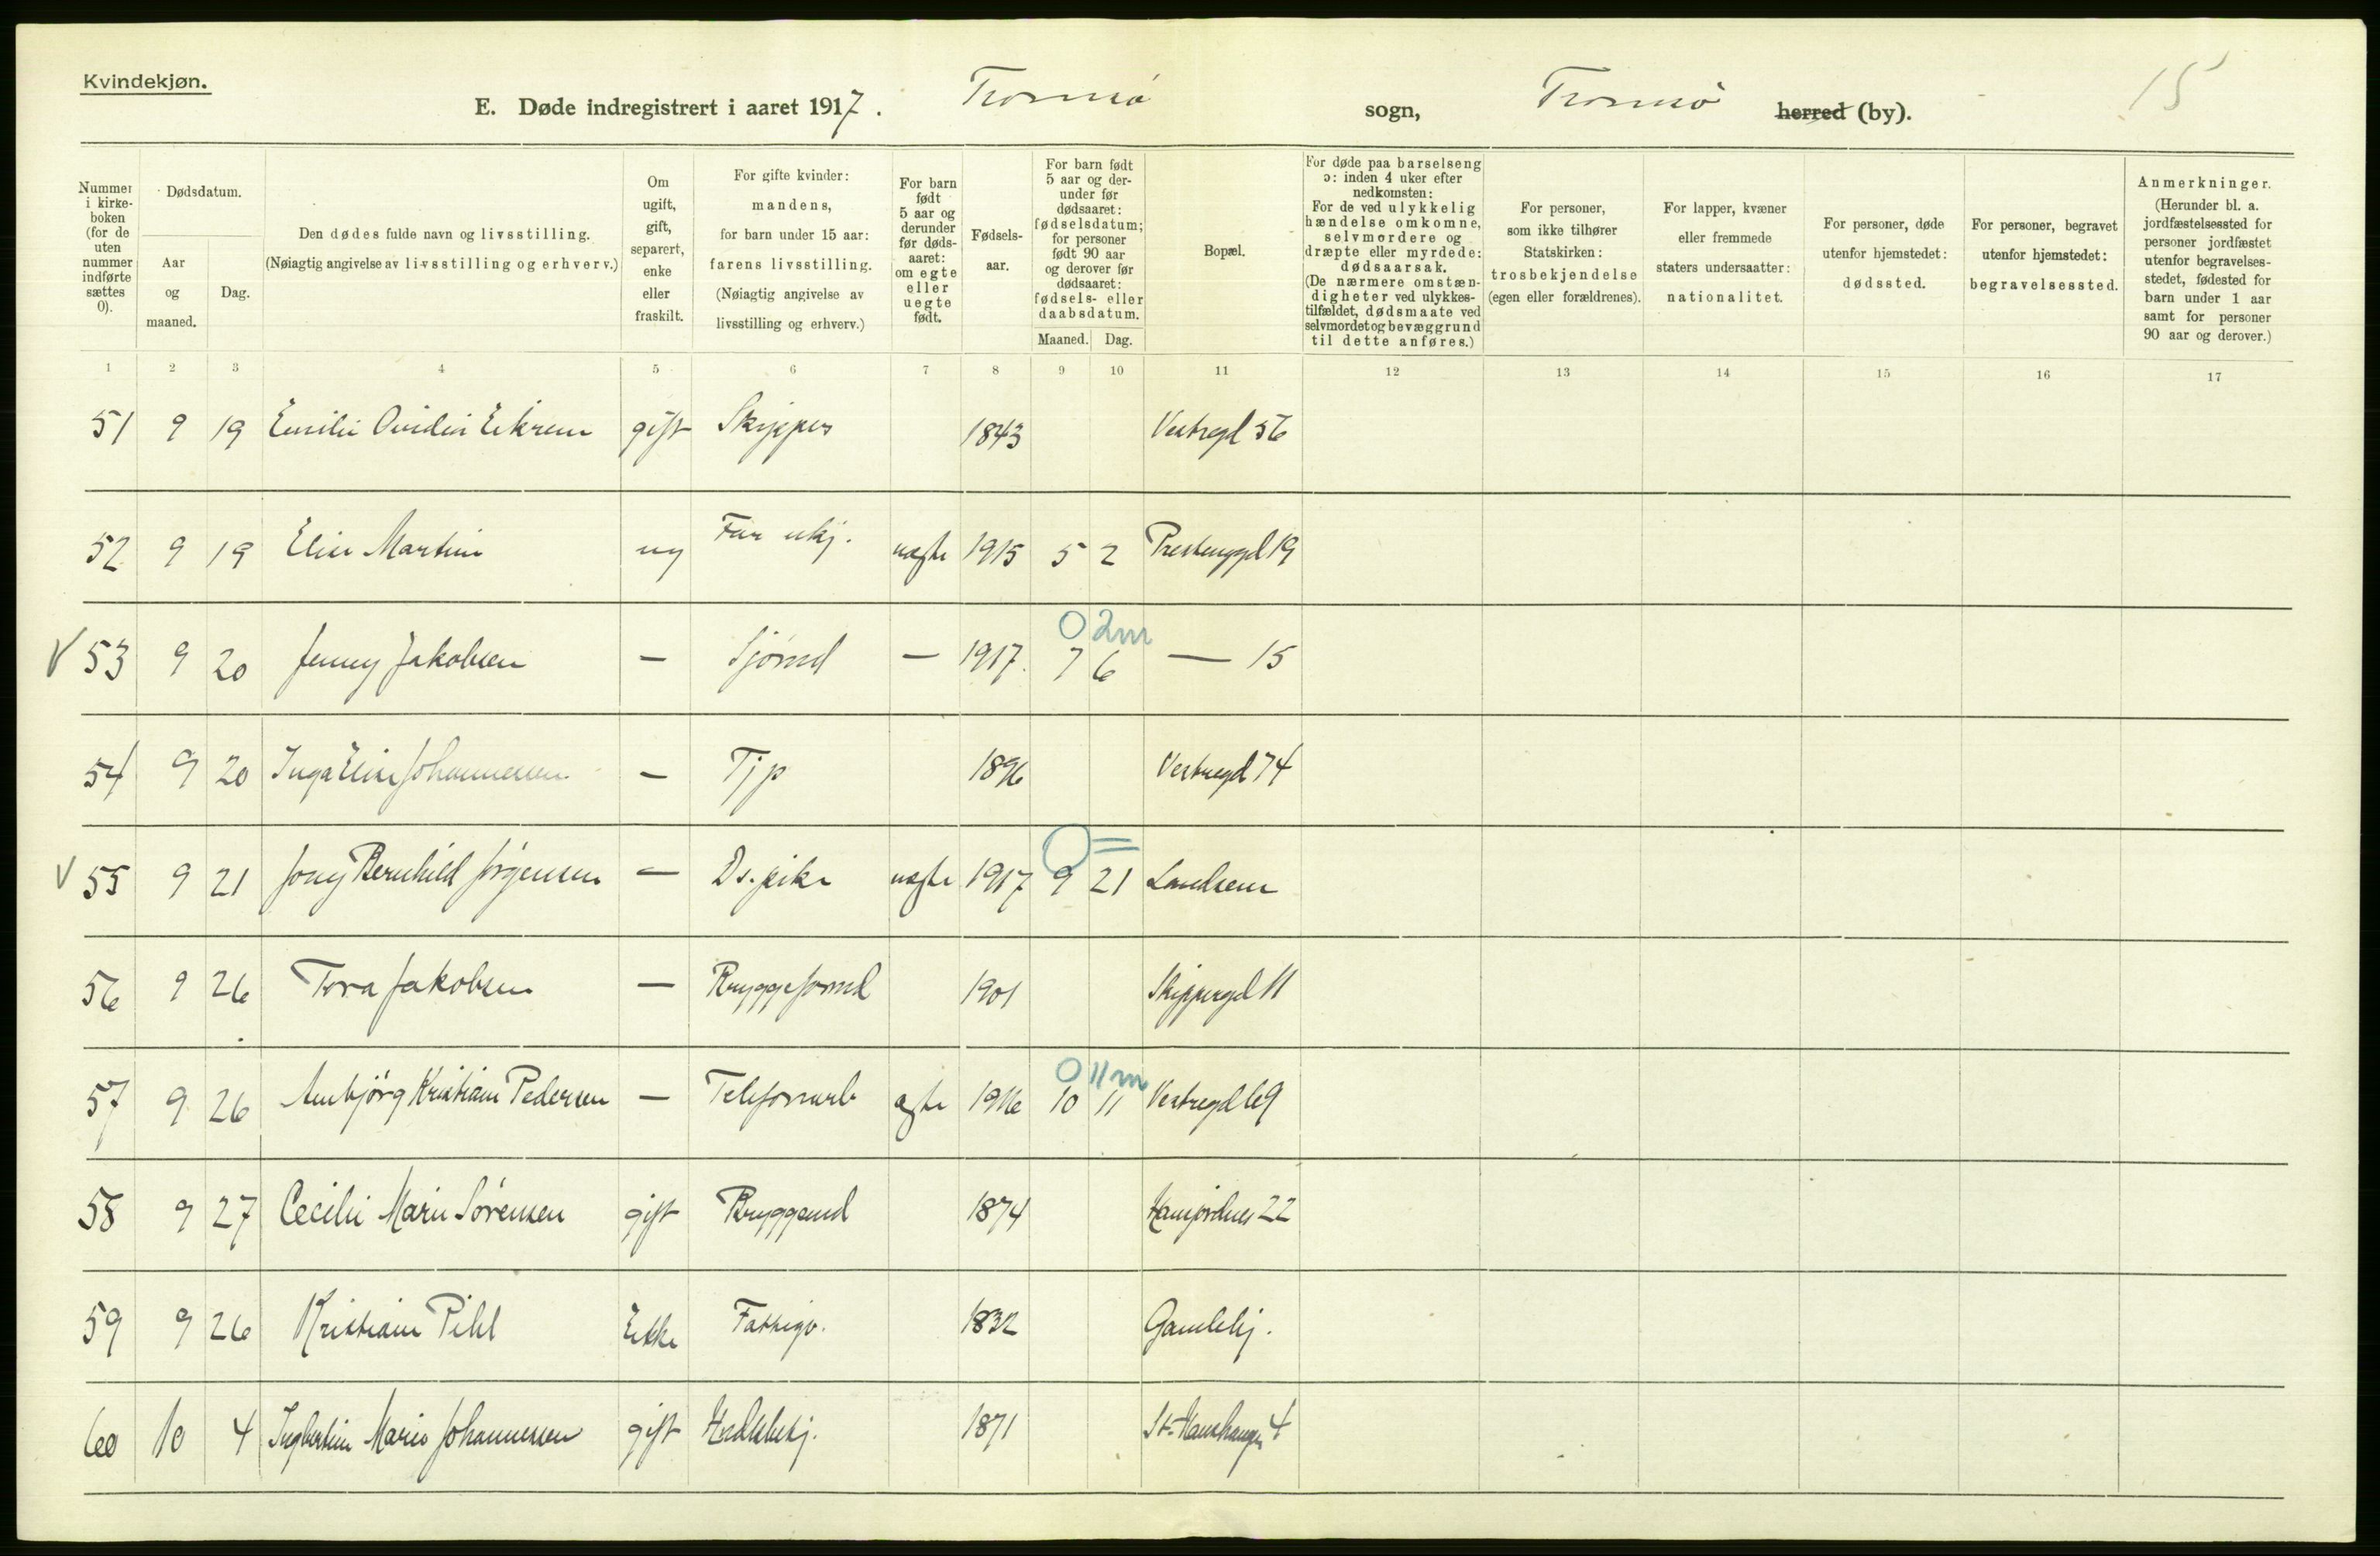 Kvindekjøn.
15
E. Døde indregistrert i aaret 1917. Tromsø sogn, Tromsø herred (by).
Nummer i kirke-boken (for de uten nummer indførte sættes 0).
Dødsdatum.
Aar og maaned.
Dag.
Den dødes fulde navn og livsstilling.
(Nøiagtig angivelse av livsstilling og erhverv.)
Om ugift, gift, separert, enke eller fraskilt.
For gifte kvinder: mandens, for barn under 15 aar: farens livsstilling. (Nøiagtig angivelse av livsstilling og erhverv.)
For barn født 5 aar og derunder før døds-aaret: om egte eller uegte født.
Fødsels-aar.
For barn født 5 aar og der-under før dødsaaret: fødselsdatum; for personer født 90 aar og derover før dødsaaret: fødsels- eller daabsdatum.
Maaned. Dag.
Bopæl.
For døde paa barselseng ɔ: inden 4 uker efter nedkomsten: For de ved ulykkelig hændelse omkomne, selvmordere og dræpte eller myrdede: dødsaarsak. (De nærmere omstæn-digheter ved ulykkes-tilfældet, dødsmaate ved selvmordet og bevæggrund til dette anføres.)
For personer, som ikke tilhører Statskirken: trosbekjendelse (egen eller forældrenes).
For lapper, kvæner eller fremmede staters undersaatter: nationalitet.
For personer, døde utenfor hjemstedet: dødssted.
For personer, begravet utenfor hjemstedet: begravelsessted.
Anmerkninger. (Herunder bl. a. jordfæstelsessted for personer jordfæstet utenfor begravelses-stedet, fødested for barn under 1 aar samt for personer 90 aar og derover.)
1 2 3 4 5 6 7 8 9 10 11 12 13 14 15 16 17
51 9 19 Emilie Ovidia Eikrem gift Skipper 1843 Vestregd 56
52 9 19 Elise Martine ug Far ukj. uægte 1915 5 2 Prestenggd 19
0 2m
V 53 9 20 Jenny Jakobsen — Sjømd — 1917. 7 6 — 15
54 9 20 Inga Elise Johannessen — Tjp 1896 Vestregd 74
0 =
V 55 9 21 Jony Bernhild Jørgensen — Ds. pike uægte 1917 9 21 Landsem
56 9 26 Tora Jakobsen — Bryggeformd 1901 Skippergd 11
0 11m
57 9 26 Annbjørg Kristiane Pedersen — Telefonarb ægte 1916 10 11 Vestregd 69
58 9 27 Cecilie Marie Sørensen gift Bryggemd 1874 22
59 9 26 Kristiane Pihl Enke Fattigv. 1832 Gamlehj.
60 10 4 Ingbertine Marie Johannessen gift 1871 St. Hanshaugen 4